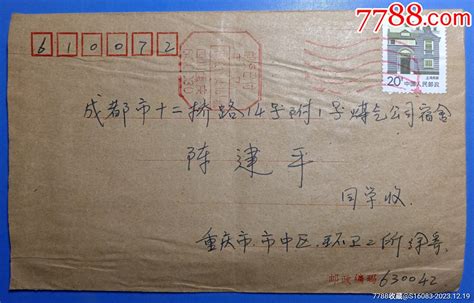 7788.com
610072
20分
中国人民邮政
成都市十二桥路14号附1号煤气公司宿舍
陈建平
同学收
重庆市市中区环卫二所 缄寄
邮政编码 630042
7788收藏@S16083-2023.12.19